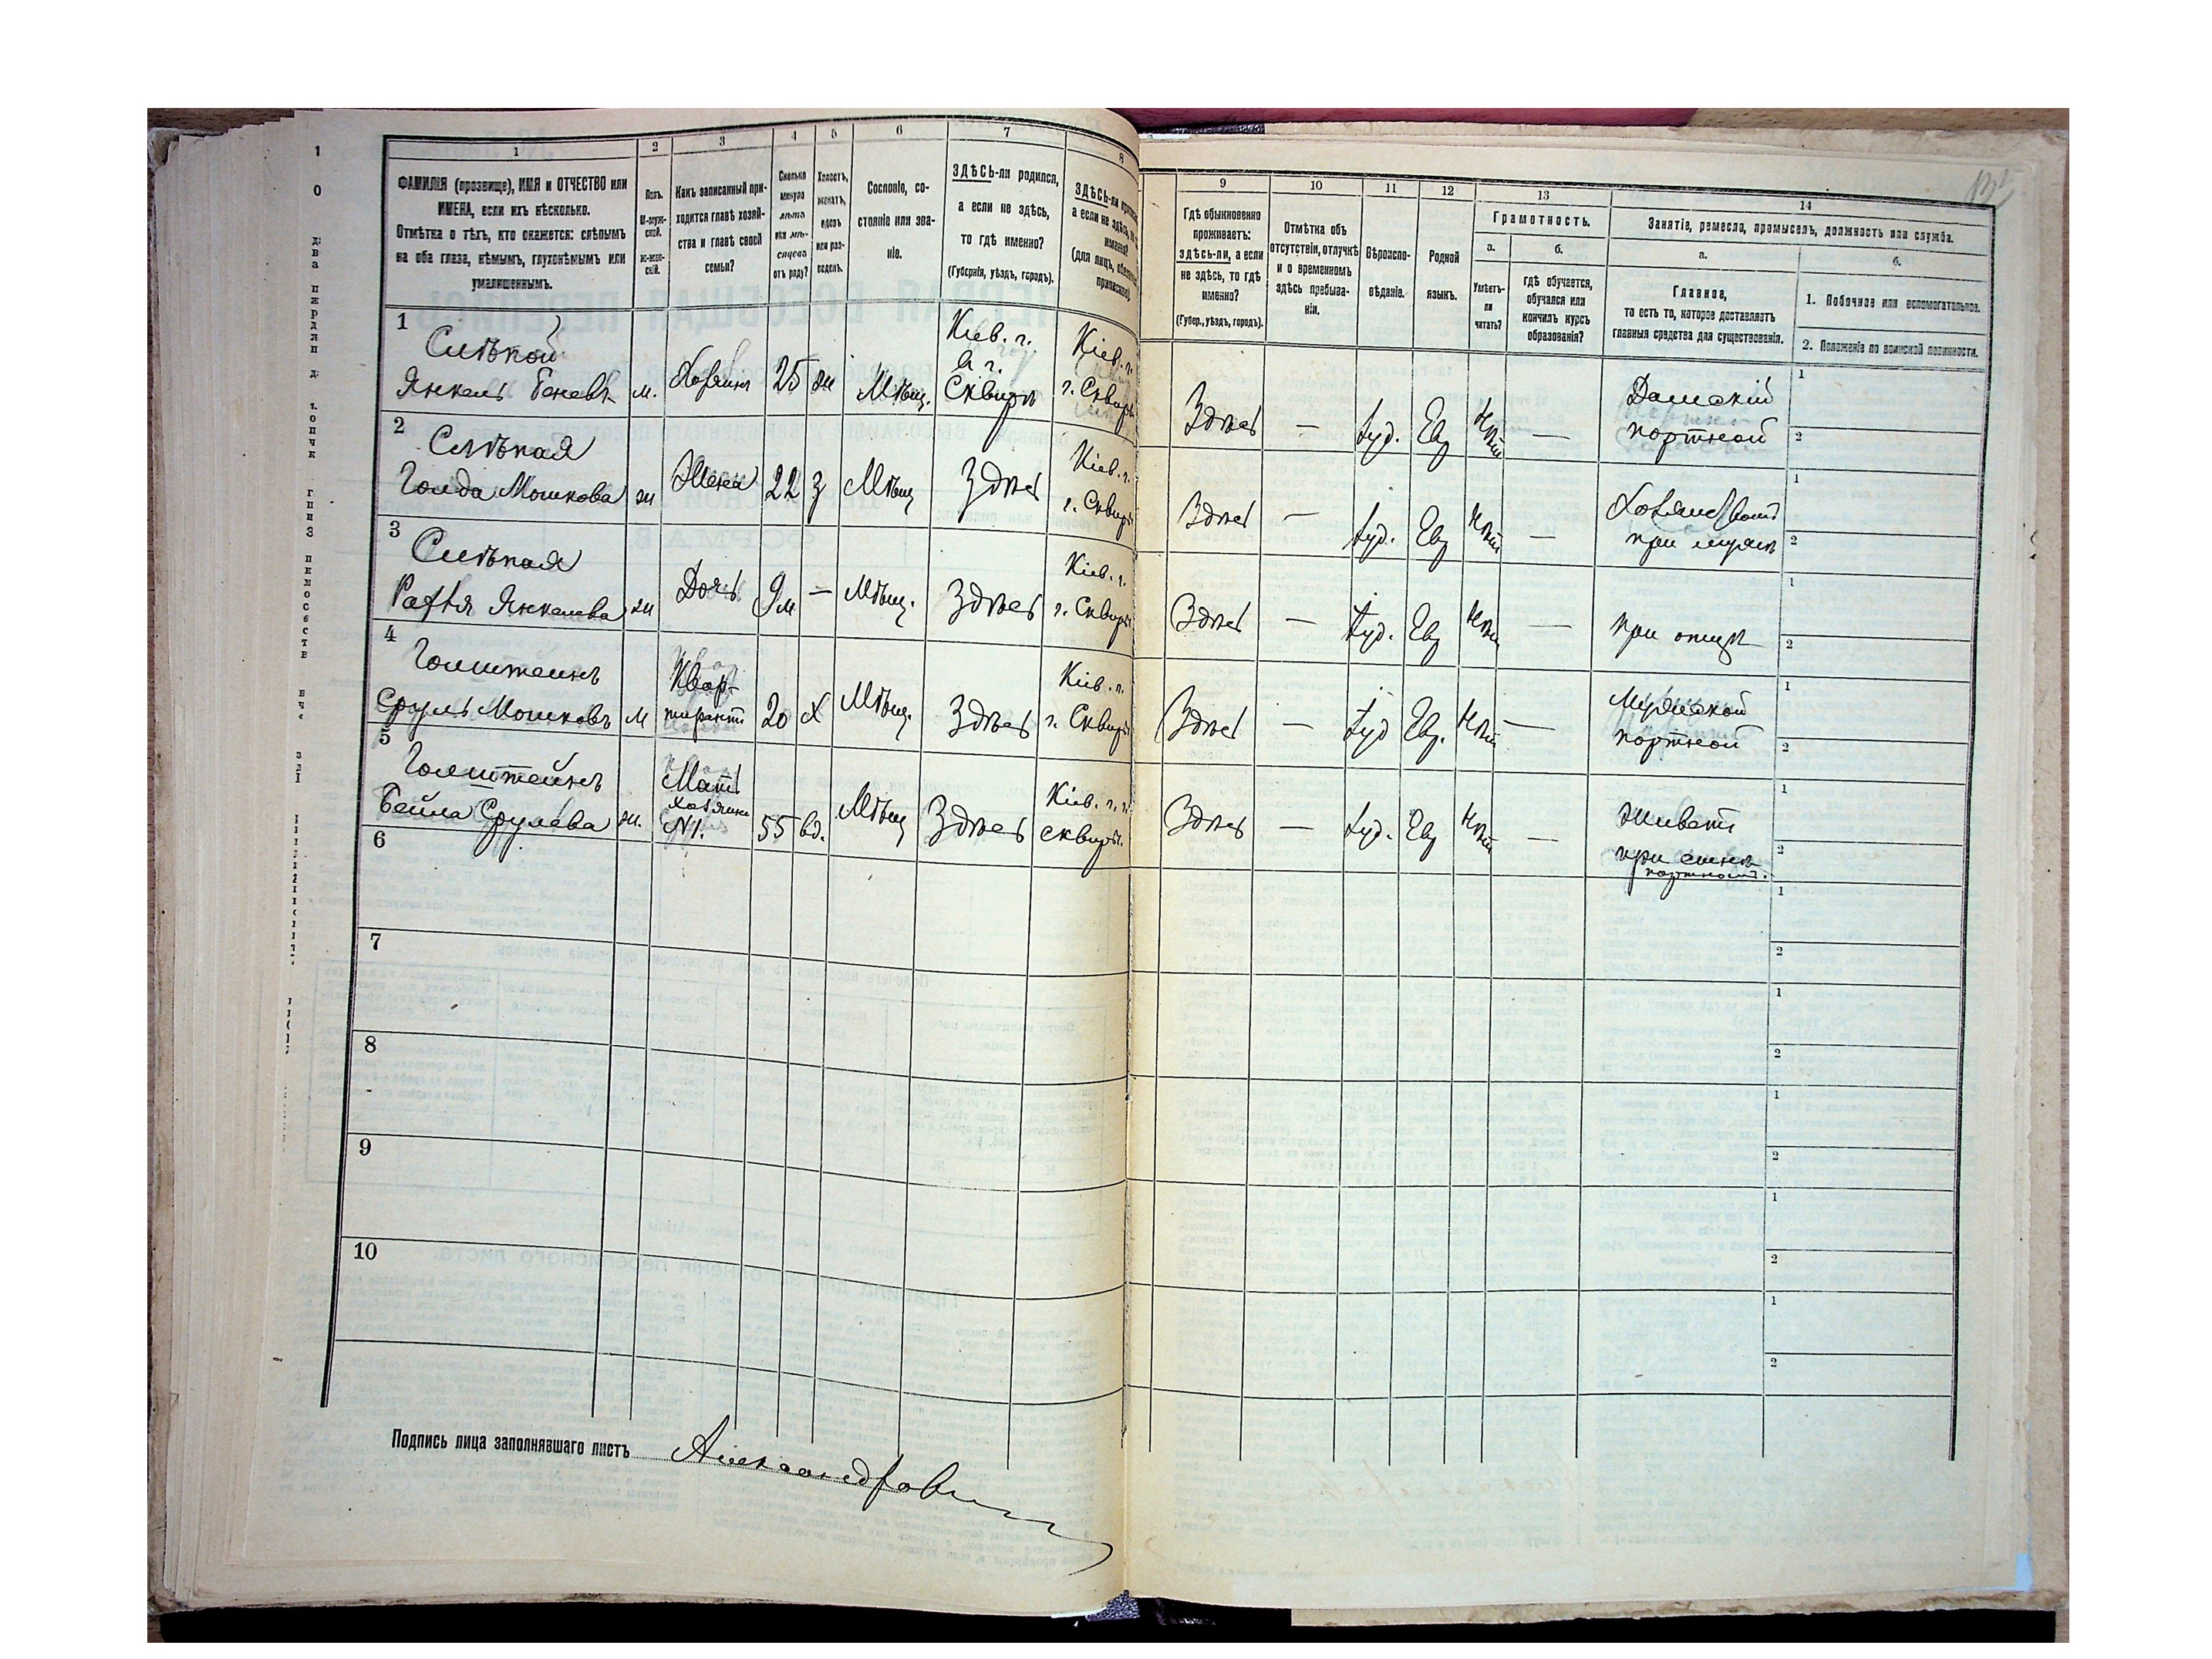 1 2 3 4 5 6 7 8
ФАМИЛІЯ (прозвище), ИМЯ и ОТЧЕСТВО или
ИМЕНА, если ихъ нѣсколько.
Отмѣтка о тѣхъ, кто окажется: слѣпымъ
на оба глаза, нѣмымъ, глухонѣмымъ или
умалишеннымъ.
Полъ.
М-муж-
ской.
ж-жен-
скій.
Какъ записанный при-
ходится главѣ хозяй-
ства и главѣ своей
семьи?
Сколько
минуло
лѣтъ
или мѣ-
сяцевъ
отъ роду?
Холостъ,
женатъ,
вдовъ
или раз-
веденъ.
Сословіе, со-
стояніе или зва-
ніе.
ЗДѢСЬ-ли родился,
а если не здѣсь,
то гдѣ именно?
(Губернія, уѣздъ, городъ).
ЗДѢСЬ-ли
а если не здѣсь,
именно?
(для лицъ,
9 10 11 12 13 14
Гдѣ обыкновенно
проживаетъ:
здѣсь-ли, а если
не здѣсь, то гдѣ
именно?
(Губер., уѣздъ, городъ).
Отмѣтка объ
отсутствіи, отлучкѣ
и о временномъ
здѣсь пребыва-
ніи.
Вѣроиспо-
вѣданіе.
Родной
языкъ.
Грамотность.
а.
Умѣетъ-
ли
читать?
б.
гдѣ обучается,
обучался или
кончилъ курсъ
образованія?
Занятіе, ремесло, промыселъ, должность или служба.
а.
Главное,
то есть то, которое доставляетъ
главныя средства для существованія.
б.
1. Побочное или вспомогательное.
2. Положеніе по воинской повинности.
1
Слѣпой
Янкель м. Хозяинъ 25 ж Мѣщ.
Кіев. г.
г.
Сквирѣ
Кіев. г.
г. Сквир
Здѣсь — Іуд. Евр Нѣт —
Дамскій
портной
1
2
2
Слѣпая
Голда Мошкова ж Жена 22 з Мѣщ Здѣсь
Кіев. г.
г. Сквир
Здѣсь — Іуд. Евр Нѣт —
при мужѣ
1
2
3
Слѣпая
Янкелева ж Дочь 9м — Мѣщ. Здѣсь
Кіев. г.
г. Сквир
Здѣсь — Іуд. Евр Нѣт —
при отцѣ
1
2
4
Голштейнъ
Сруль Мошковъ м
Квар-
тирантъ
20 х Мѣщ. Здѣсь
Кіев. г.
г. Сквир
Здѣсь — Іуд Евр. Нѣт —
Мужской
портной
1
2
5
Голштейнъ
Бейла Срулева ж.
Мать
хозяина
№1.
55 вд. Мѣщ Здѣсь
Кіев. г. г.
Сквир.
Здѣсь — Іуд. Евр Нѣт —
Живетъ
при сынѣ
портномъ.
1
2
6
1
2
7
1
2
8
1
2
9
1
2
10
1
2
Подпись лица заполнявшаго листъ